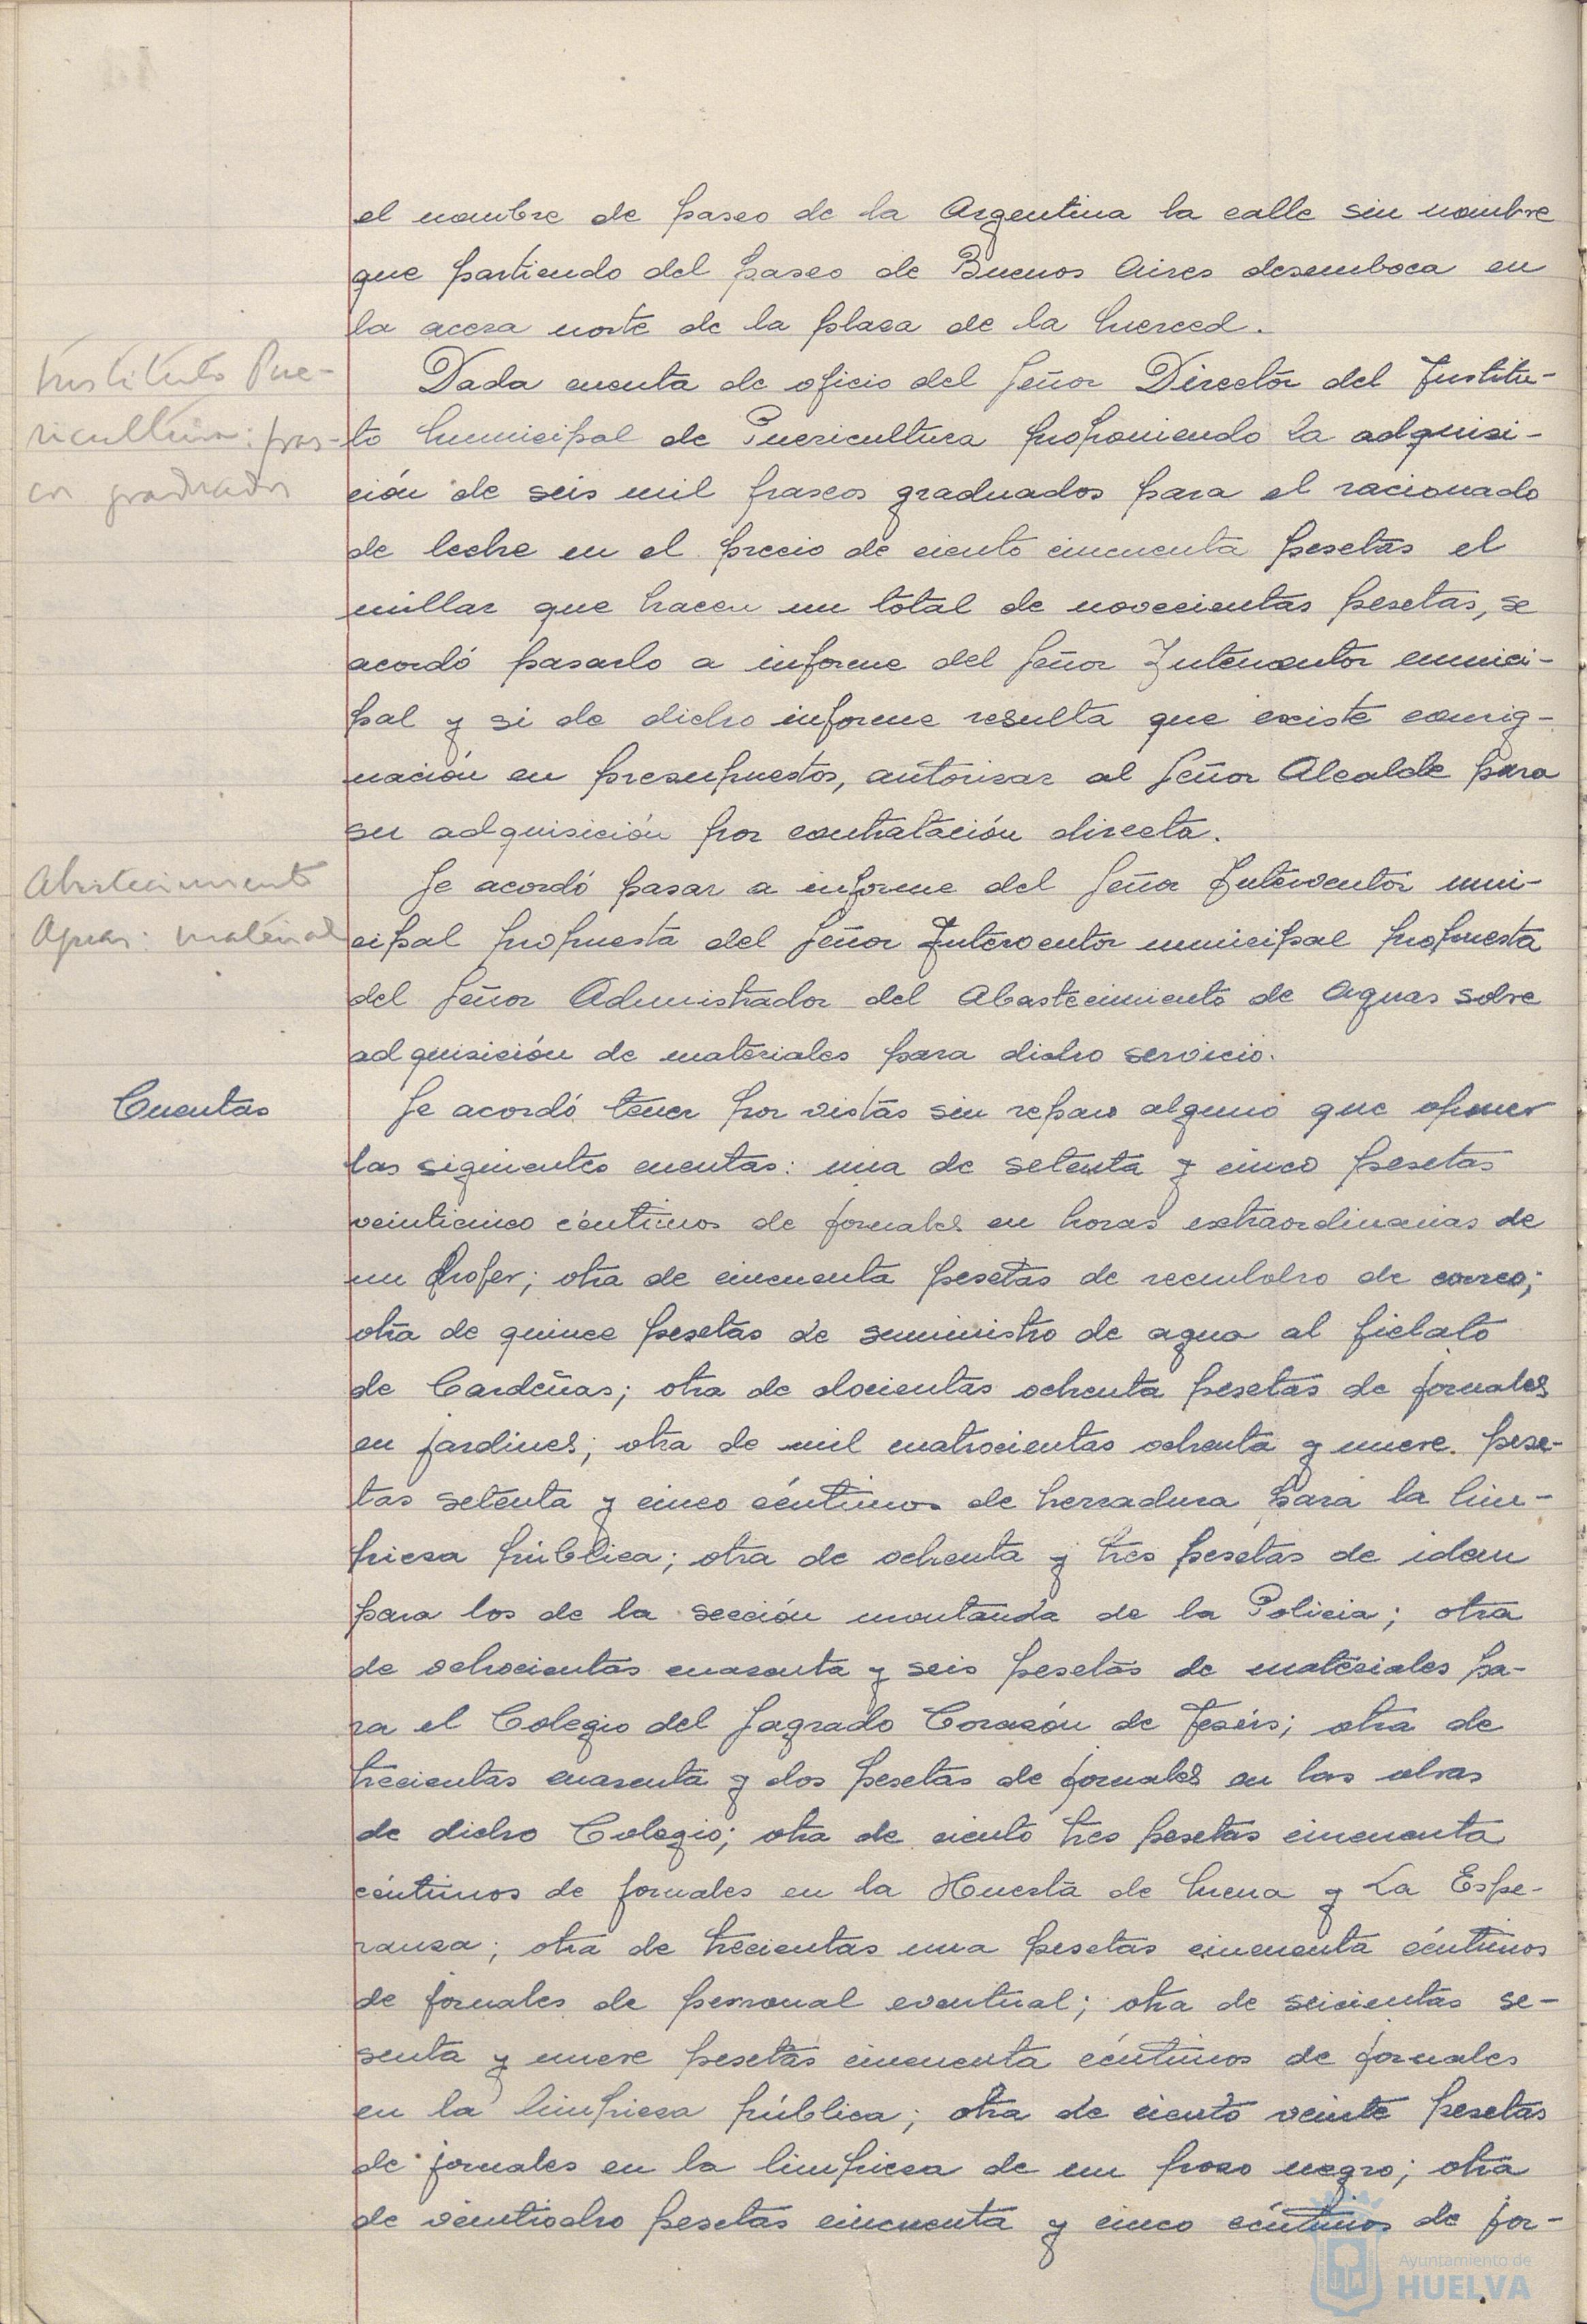 el nombre de paseo de la Argentina la calle sin nombre
que partiendo del paseo de Buenos Aires desemboca en
la acera norte de la plaza de la Merced.
Instituto Pue-
ricultura: fras-
cos graduados
Dada cuenta de oficio del Señor Director del Institu-
to Municipal de Puericultura proponiendo la adquisi-
ción de seis mil frascos graduados para el racionado
de leche en el precio de ciento cincuenta pesetas el
millar que hacen un total de novecientas pesetas, se
acordó pasarlo a informe del Señor Interventor munici-
pal y si de dicho informe resulta que existe consig-
nación en presupuestos, autorizar al Señor Alcalde para
su adquisición por contratación directa.
Abastecimiento
Aguas: material
Se acordó pasar a informe del Señor Interventor muni-
cipal propuesta del Señor Interventor municipal propuesta
del Señor Administrador del Abastecimiento de Aguas sobre
adquisición de materiales para dicho servicio.
Cuentas
Se acordó tener por vistas sin reparo alguno que oponer
las siguientes cuentas: una de setenta y cinco pesetas
veinticinco céntimos de jornales en horas extraordinarias de
un chofer; otra de cincuenta pesetas de reembolso de correo;
otra de quince pesetas de suministro de agua al fielato
de Cardeñas; otra de docientas ochenta pesetas de jornales
en jardines; otra de mil cuatrocientas ochenta y nueve pese-
tas setenta y cinco céntimos de herradura para la lim-
pieza pública; otra de ochenta y tres pesetas de idem
para los de la sección montanda de la Policia; otra
de ochocientas cuarenta y seis pesetas de materiales pa-
ra el Colegio del Sagrado Corazón de Jesús; otra de
trecientas cuarenta y dos pesetas de jornales en las obras
de dicho Colegio; otra de ciento tres pesetas cincuenta
céntimos de jornales en la Huerta de Mena y La Espe-
ranza; otra de trecientas una pesetas cincuenta céntimos
de jornales de personal eventual; otra de seicientas se-
senta y nueve pesetas cincuenta céntimos de jornales
en la limpieza pública; otra de ciento veinte pesetas
de jornales en la limpieza de un pozo negro; otra
de ventiocho pesetas cincuenta y cinco céntimos de jor-
Ayuntamiento de
HUELVA